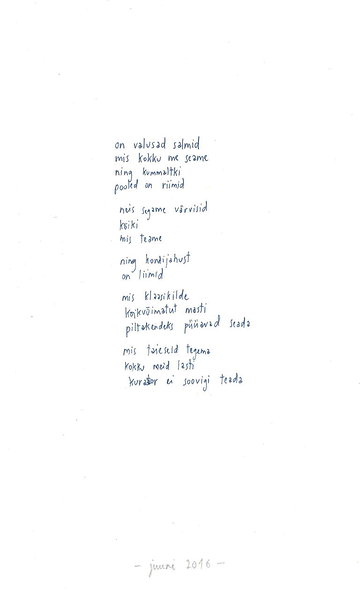 on valusad salmid
mis kokku me seame
ning kummaltki
pooled on riimid
neis segame värvisid
kõiki
mis teame
ning kondijahust
on liimid
mis klaasikilde
kõikvõimatut masti
piltakendeks püüavad seada
mis taieseid tegema
kokku meid lasti
kuraator ei soovigi teada
- juuni 2016 -